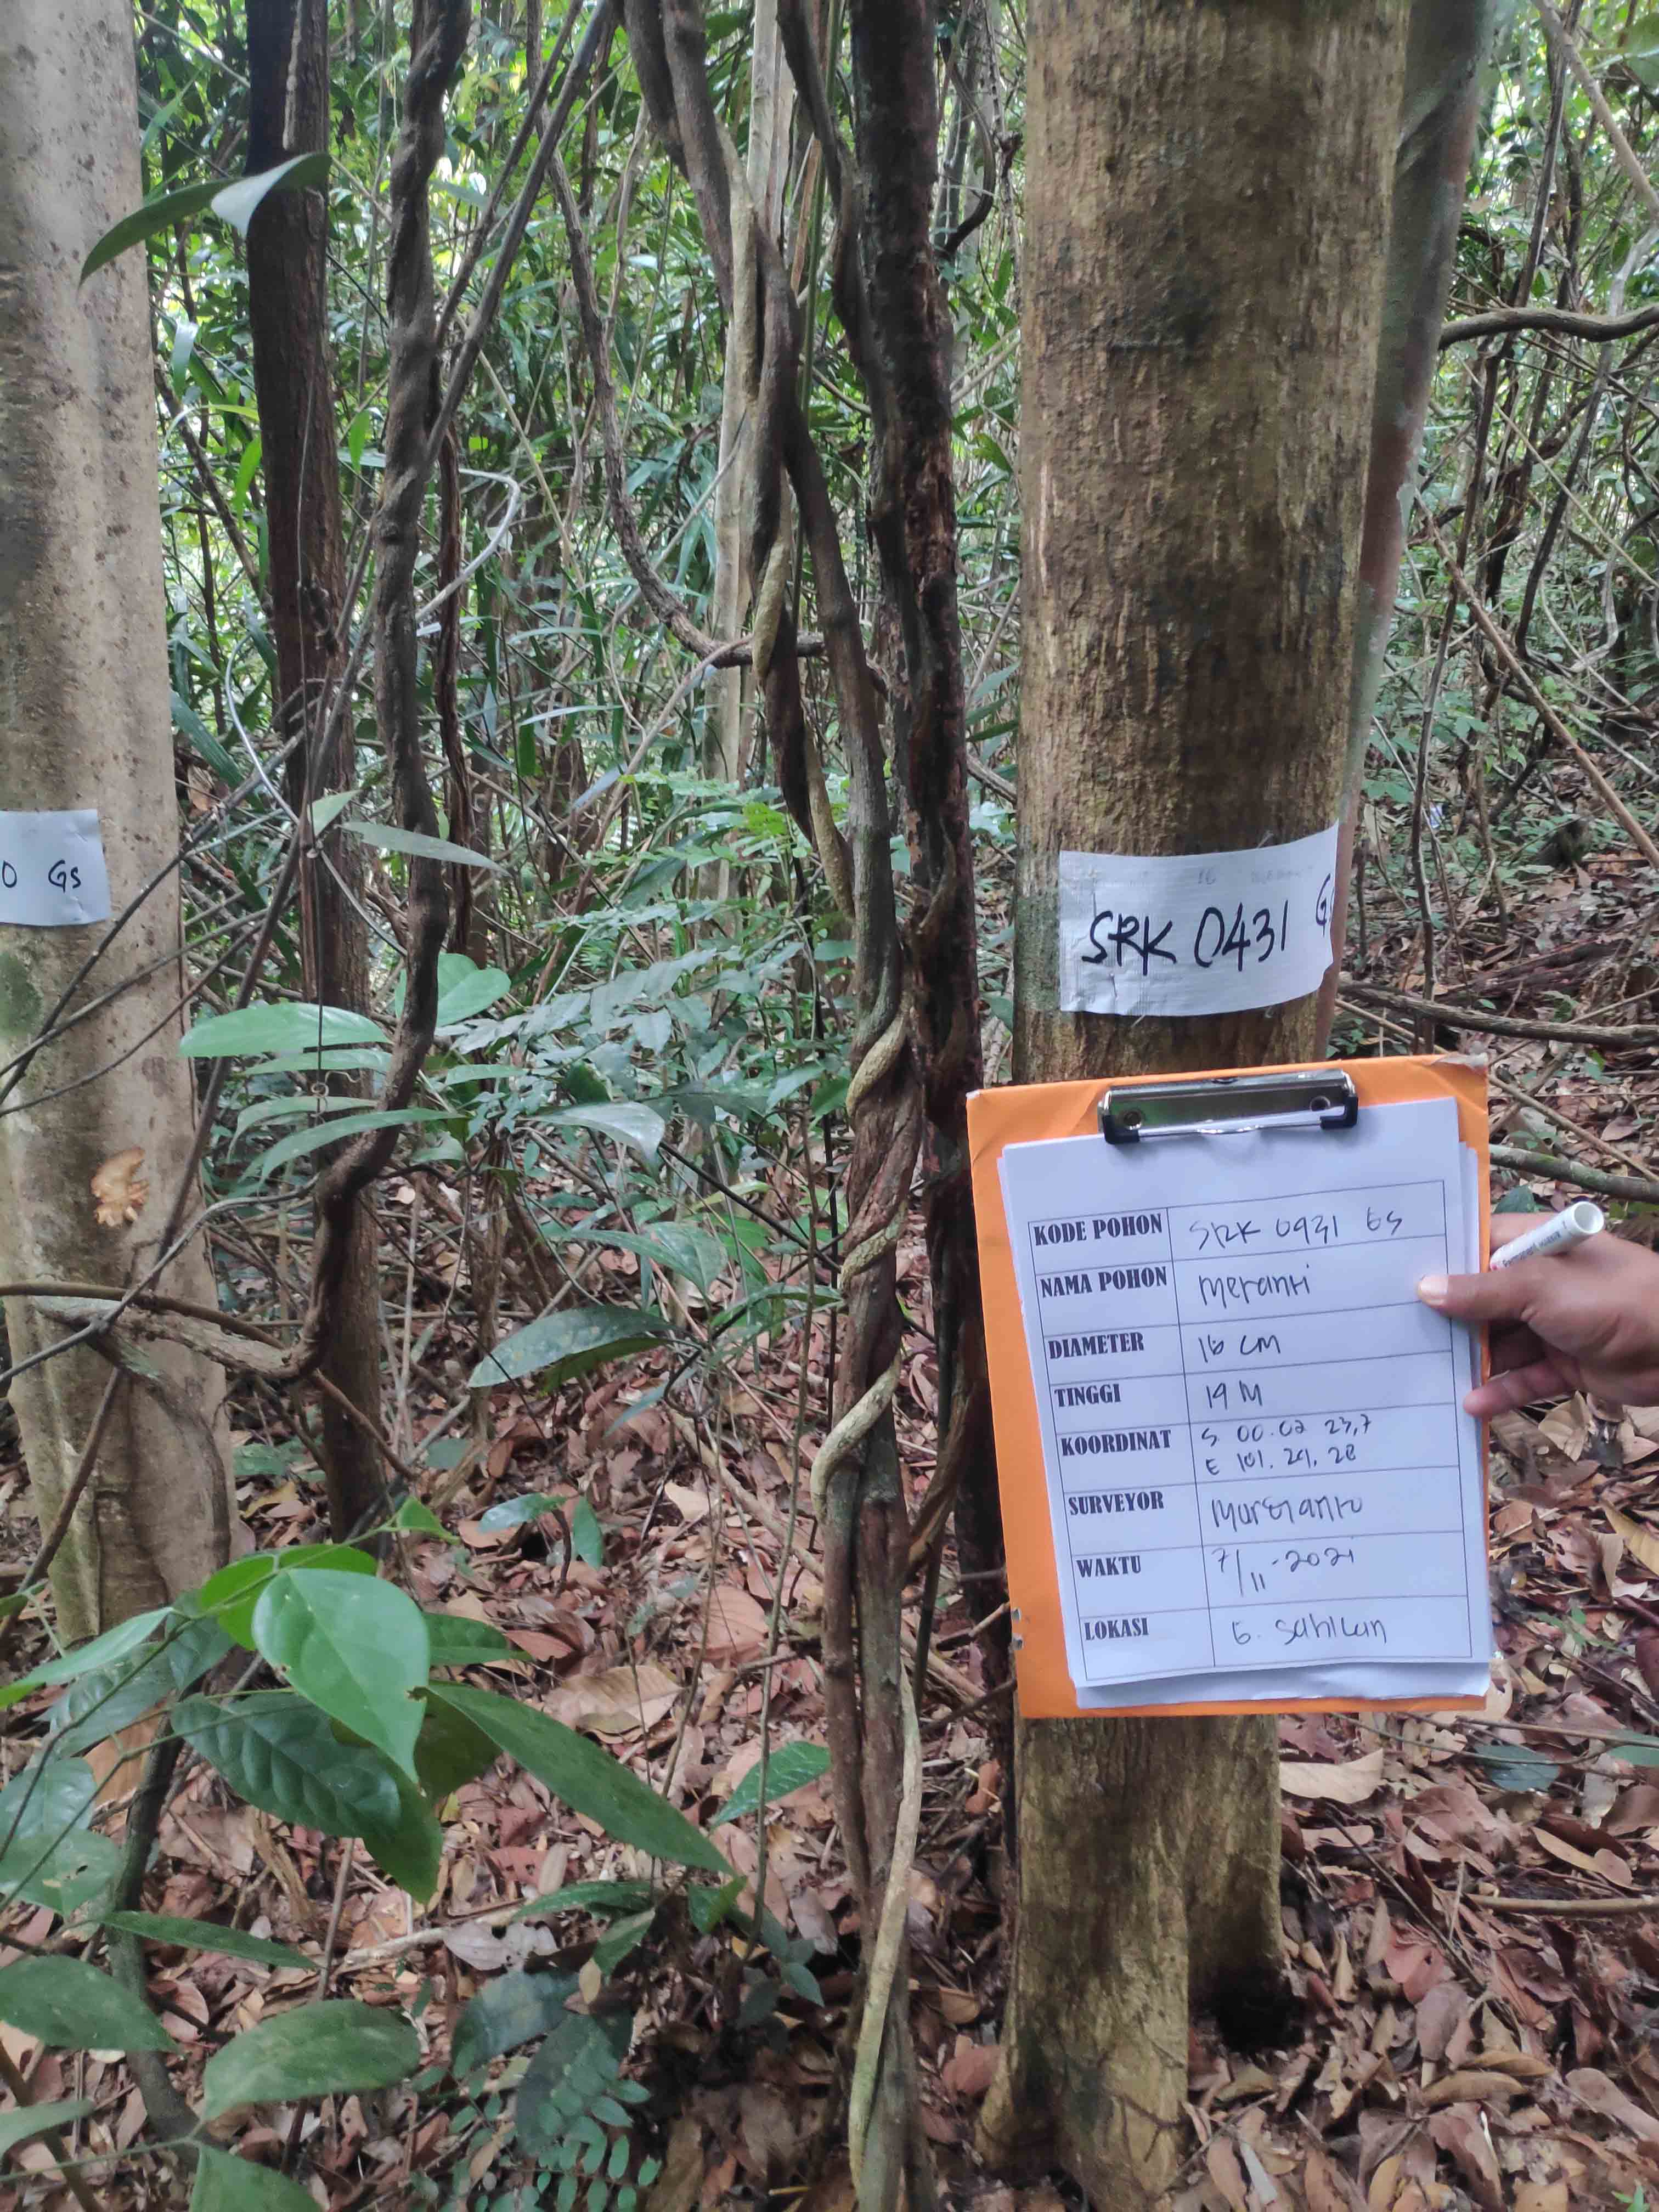 0 Gs
SRK 0431 G
KODE POHON SRK 0431 GS
NAMA POHON Meranti
DIAMETER 16 CM
TINGGI 19 M
KOORDINAT S 00.02 23,7
E 101.29.28
SURVEYOR
WAKTU 7/11-2021
LOKASI G. Sahilan